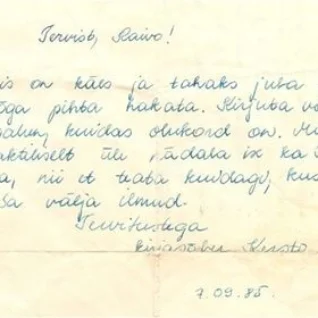 Tervist, Raivo!
is on käes ja tahaks juba
õga pihta hakata. Kirjuta va
kuidas olukord on.
aktiliselt üle nädala ix ka
a, nii et teata kuidagi, kus
sa välja ilmud.
Tervitustega
kirjasõber Kersto
7.09.85.